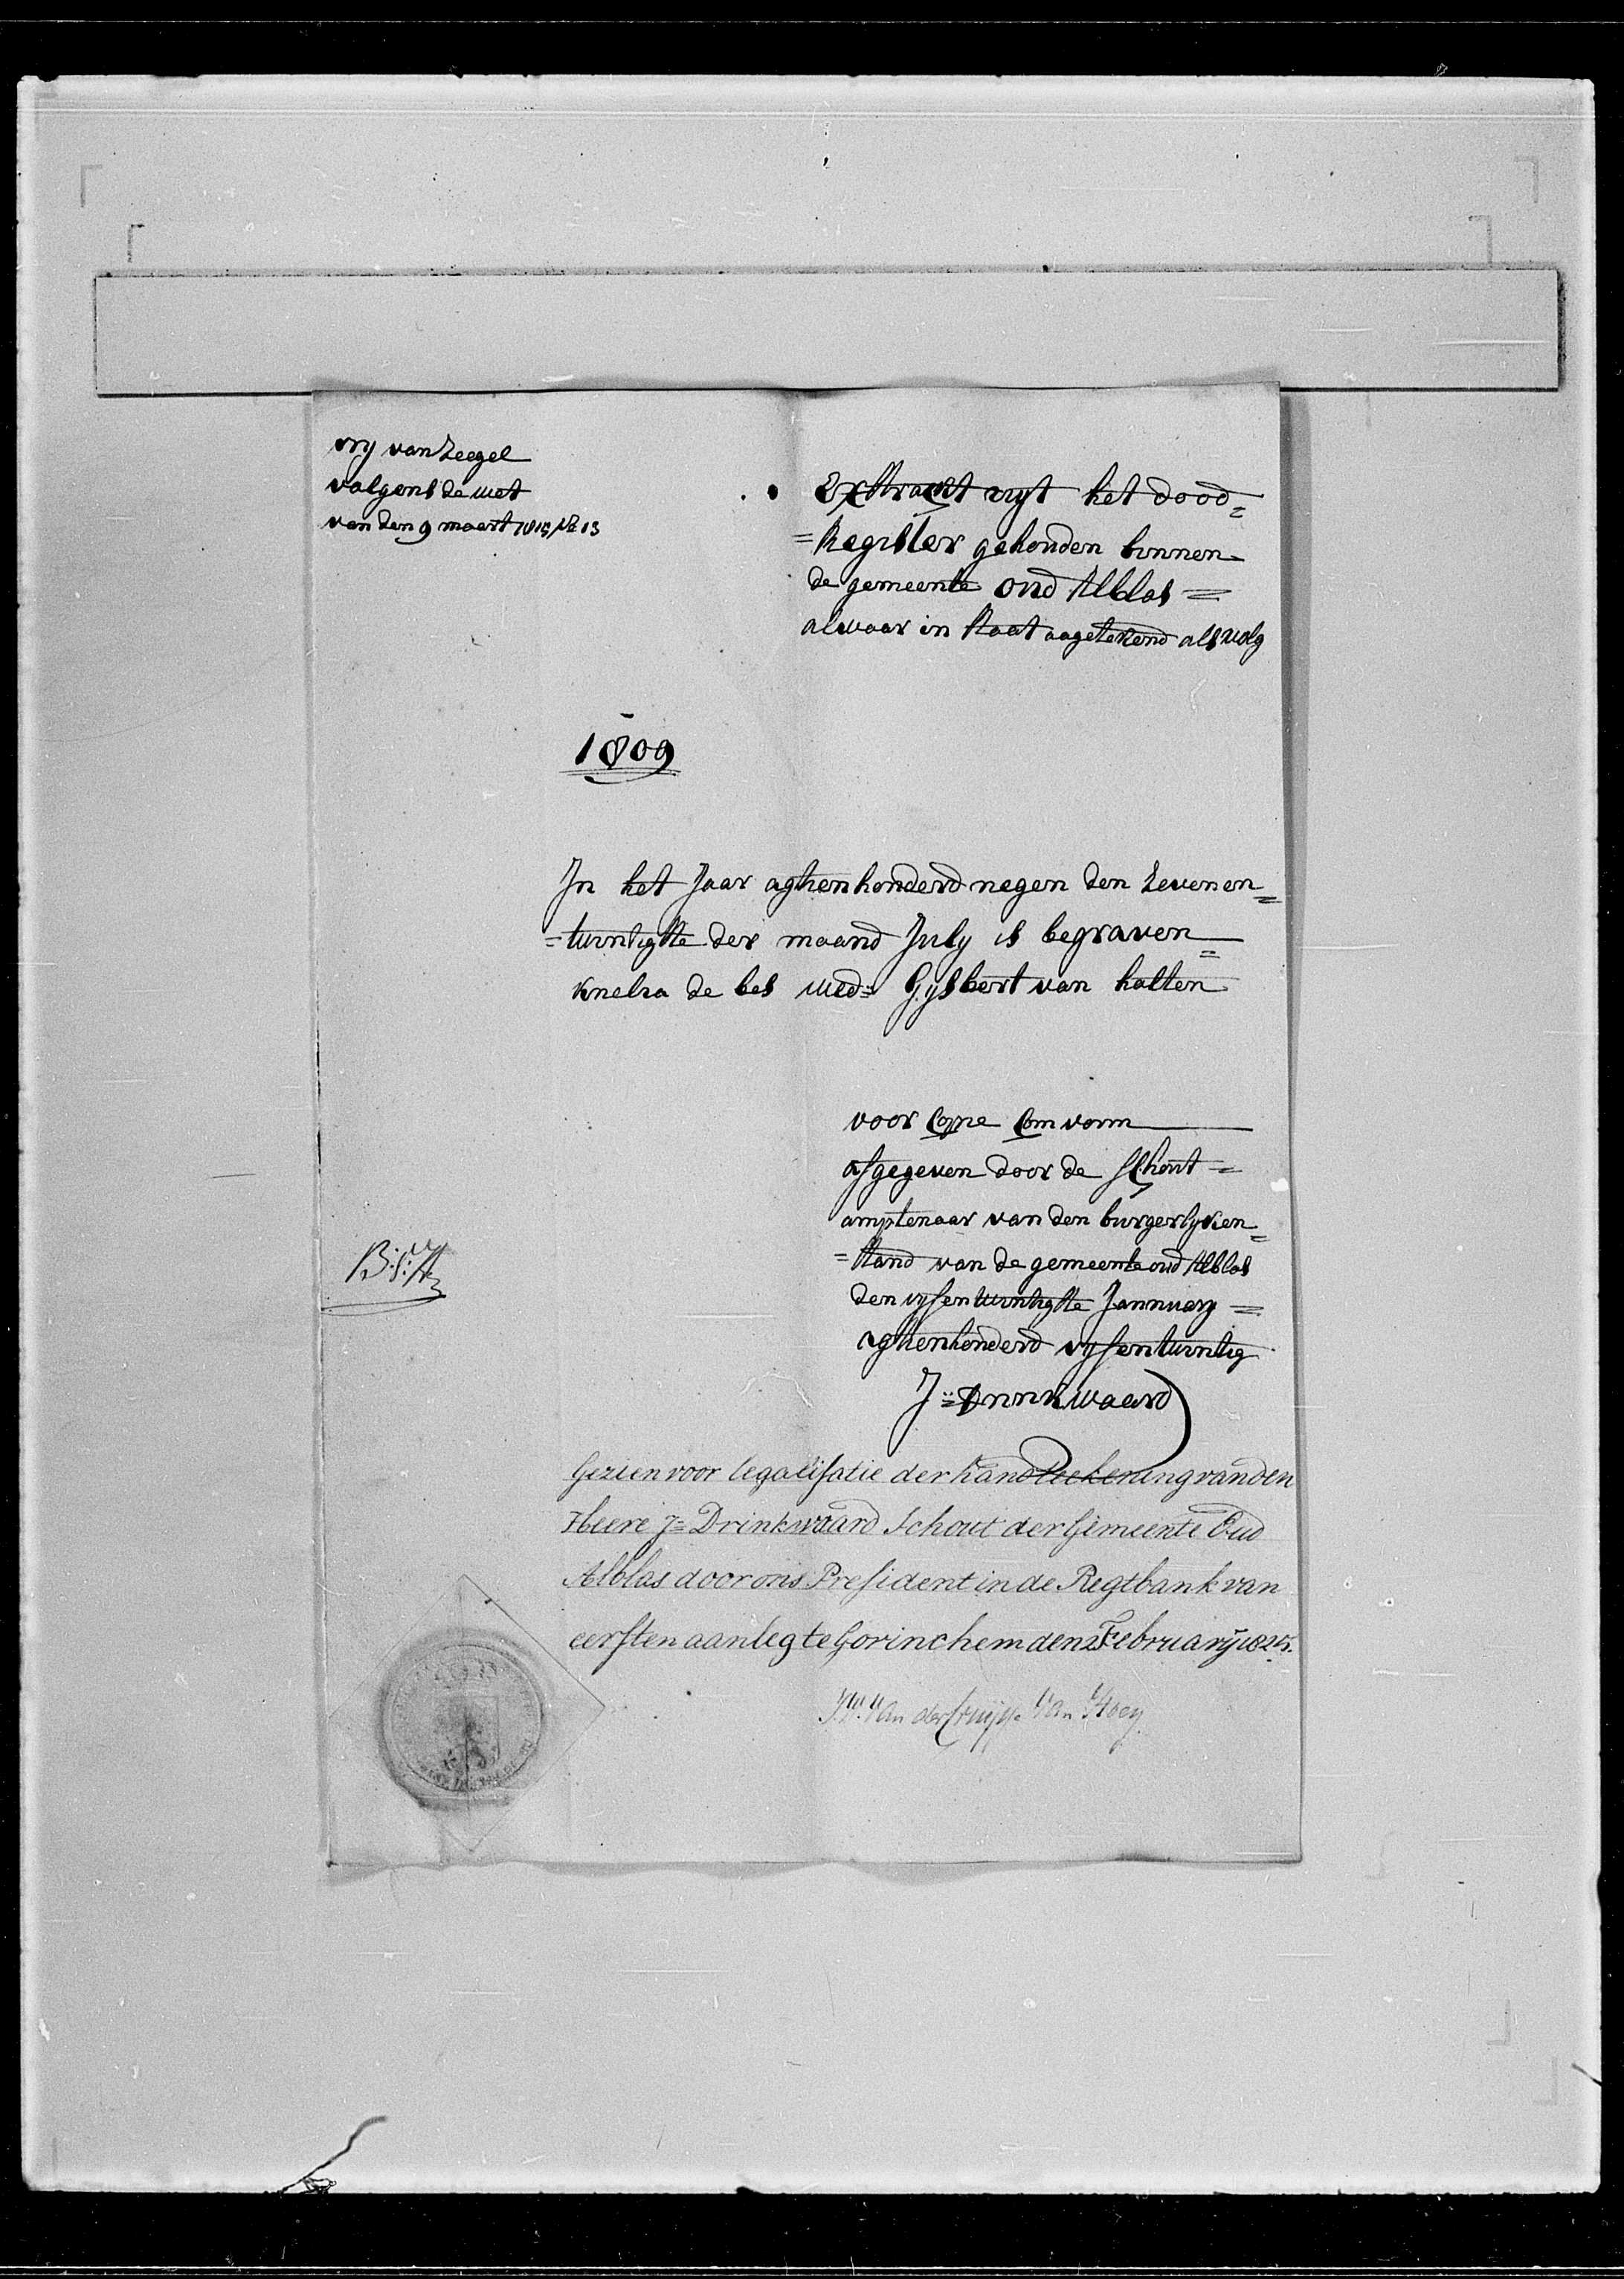 vry van Zeegel
volgens de wet
van den 9 maart 1815 No 13
Exttract uyt het dood=
=Register gehouden binnen
de gemeente oud Alblas =
alwaar in staat aagetekend als volg
1809
In het Jaar agtienhonderd negen den Zevenen=
=twintigste der maand July is begraven=
knelia de bes wed= Gysbert van halten
voor Copie Comvorm
afgegeven door de schout =
amptenaar van den burgerlyken=
=stand van de gemeente oud Alblas
den vyfentwintigste Jannuary =
agtienhonderd vyfentwintig
J= Drinkwaard
Gezien voor legalisatie der handteekening van den
Heere J= Drinkwaard Schout der Gemeente Oud
Alblas door ons President in de Regtbank van
eersten aanleg te Gorinchem den 2 February 1825.
Van der Van Hoey